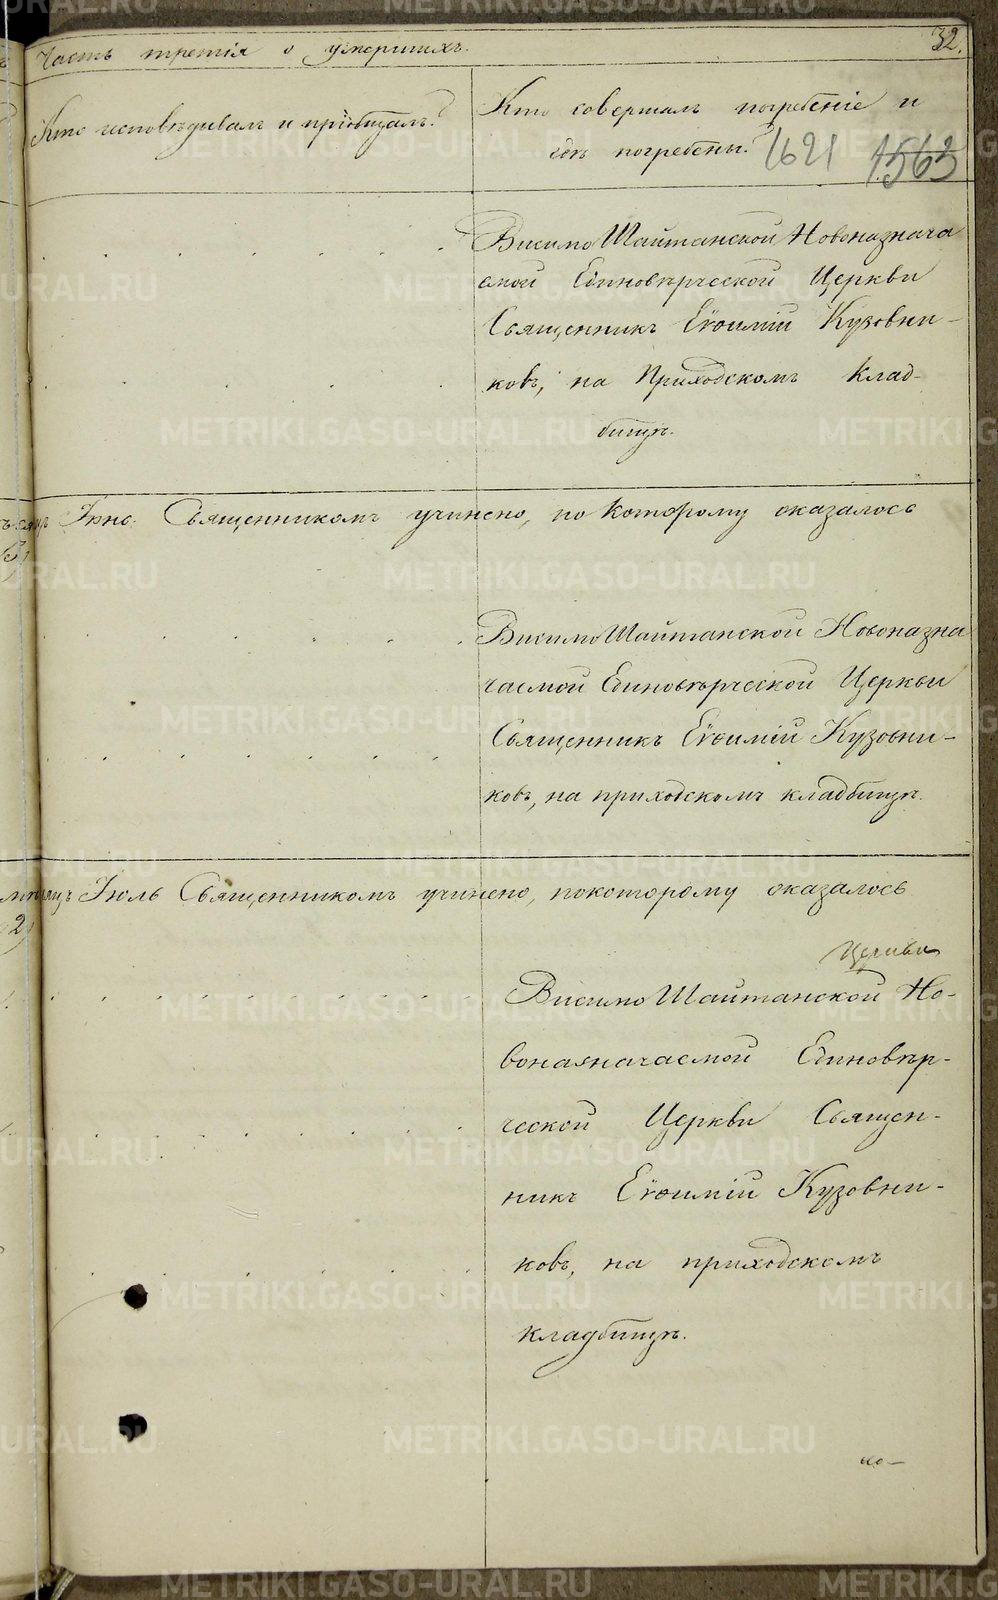 Часть третія о умершихъ.
32.
Кто исповѣдивалъ и пріобщалъ?
Кто совершалъ погребеніе и
гдѣ погребены?
1621 1563
Висимо Шайтанской Новоназнача
емой Единовѣрческой Церкви
Священникъ Евѳимій Кузовни-
ковъ, на Приходскомъ Клад-
бищѣ.
Іюнь Священникомъ учинено, по которому оказалось
Висимо Шайтанской Новоназна
чаемой Единовѣрческой Церкви
Священникъ Евѳимій Кузовни-
ковъ, на приходскомъ кладбищѣ.
Іюль Священникомъ учинено, покоторому оказалось
Висимо Шайтанской Но-
воназначаемой Единовѣр-
ческой Церкви Священ-
никъ Евѳимій Кузовни-
ковъ, на приходскомъ
кладбищѣ.
METRIKI.GASO-URAL.RU